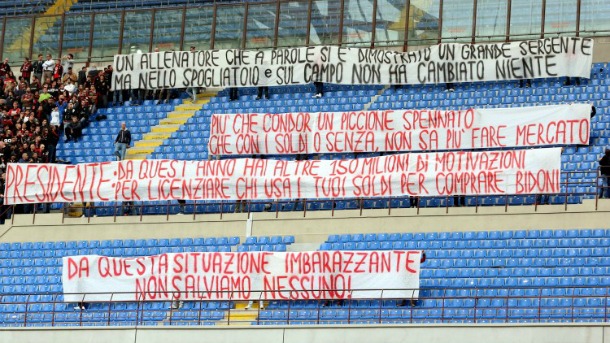 UN ALLENATORE CHE A PAROLE SI È DIMOSTRATO UN GRANDE SERGENTE
MA NELLO SPOGLIATOIO e SUL CAMPO NON HA CAMBIATO NIENTE
PIU' CHE CONDOR UN PICCIONE SPENNATO
CHE CON I SOLDI O SENZA, NON SA PIU' FARE MERCATO
PRESIDENTE: DA QUEST'ANNO HAI ALTRE 150 MILIONI DI MOTIVAZIONI
PER LICENZIARE CHI USA I TUOI SOLDI PER COMPRARE BIDONI
DA QUESTA SITUAZIONE IMBARAZZANTE
NON SALVIAMO NESSUNO!